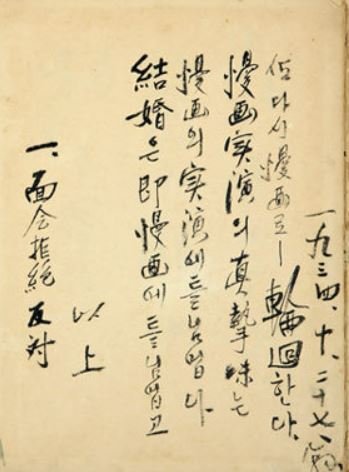 一、面会拒絶反対
以上
結婚은 即 慢画에 틀님업고
慢画의 実演에 틀님업다.
慢画実演의 真摯味는
또다시 慢画로— 輪廻한다.
一九三四、十、二十七、